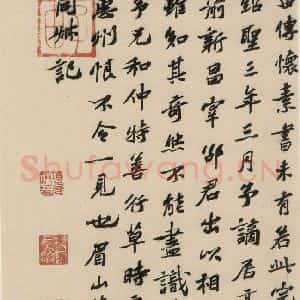 傳懷素書未有若此完
紹聖三年三月予謫居高
前新昌宰邵君出以相
雖知其奇然不能盡識
予兄和仲特善行草時
惠州恨不令一見也眉山
同叔記
Shufawang.CN